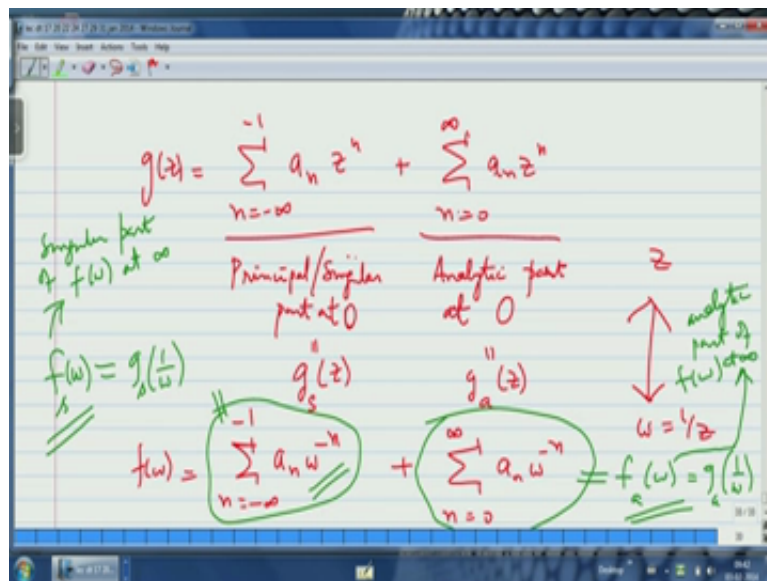 File Edit View Insert Actions Tools Help
g(z) = \sum_{n=-\infty}^{-1} a_n z^n + \sum_{n=0}^{\infty} a_n z^n
Singular part
of f(w) at ∞
Principal/Singular
part at 0
Analytic part
at 0
z
analytic
part of
f(w) at ∞
f_s(w) = g_s(1/w)
g_s(z)
g_a(z)
w = 1/z
f(w) = \sum_{n=-\infty}^{-1} a_n w^{-n} + \sum_{n=0}^{\infty} a_n w^{-n} = f_a(w) = g_a(1/w)
Desktop